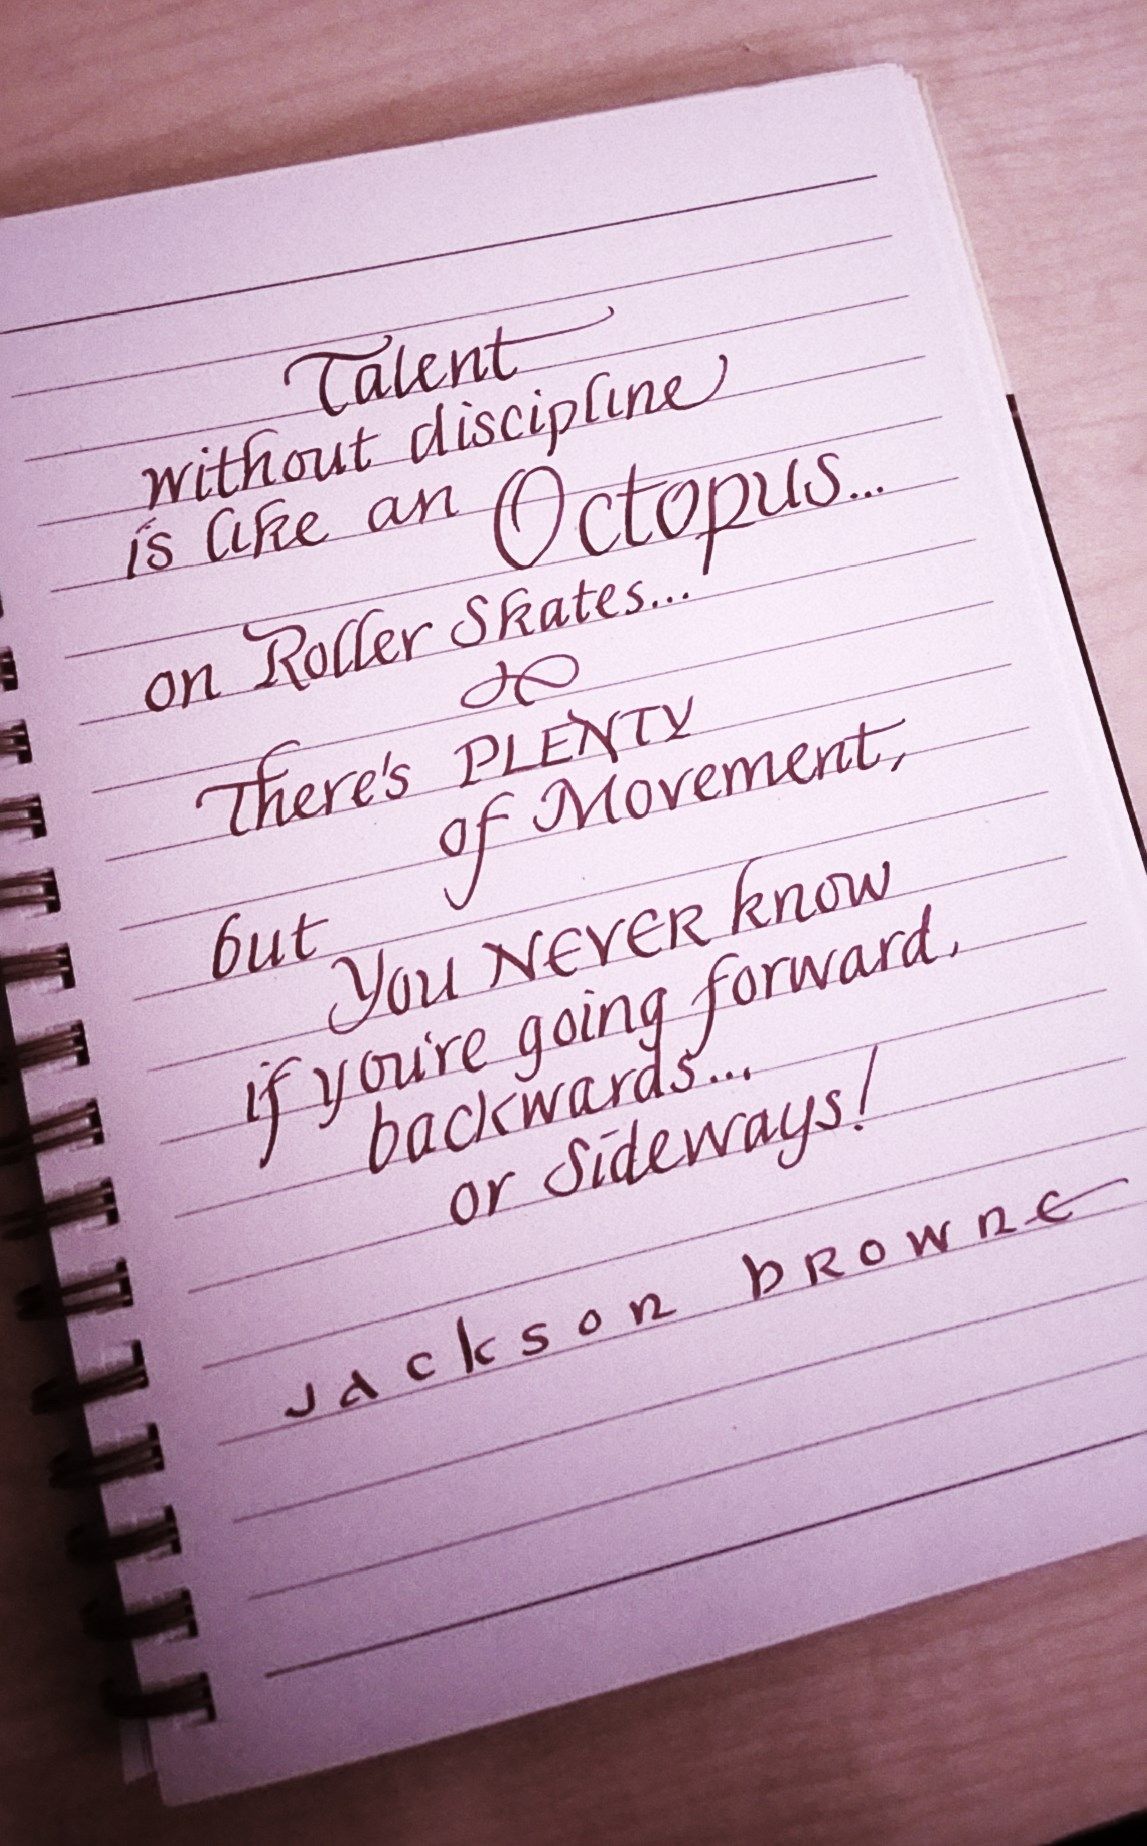 Talent
without discipline
is like an Octopus...
on Roller Skates...
There's PLENTY
of Movement,
but
You NEVER know
if you're going forward,
backwards...
or Sideways!
Jackson Browne